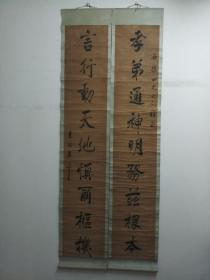 孝弟通神明務茲根本
言行動天地慎爾樞機